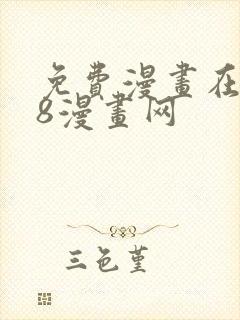 免費漫畫在
8漫畫网
三色堇